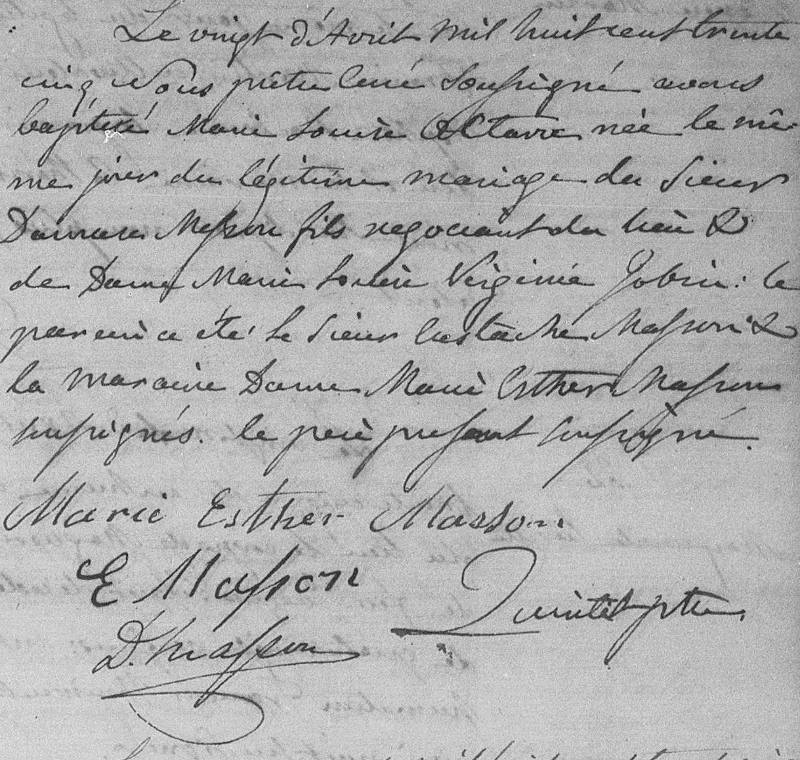 Le vingt d'Avril mil huit cent trente
cinq Nous prêtre curé soussigné avons
baptisé Marie Louise Octavie née le mê-
me jour du légitime mariage du Sieur
Damase Masson fils negociant du lieu &
de Dame Marie Louise Virginie Jobin: le
parrain a été le Sieur Eustache Masson &
la maraine Dame Marie Esther Masson
soussignés. le père présent soussigné.
Marie Esther Masson
E Masson
Quintal ptre.
D. Masson